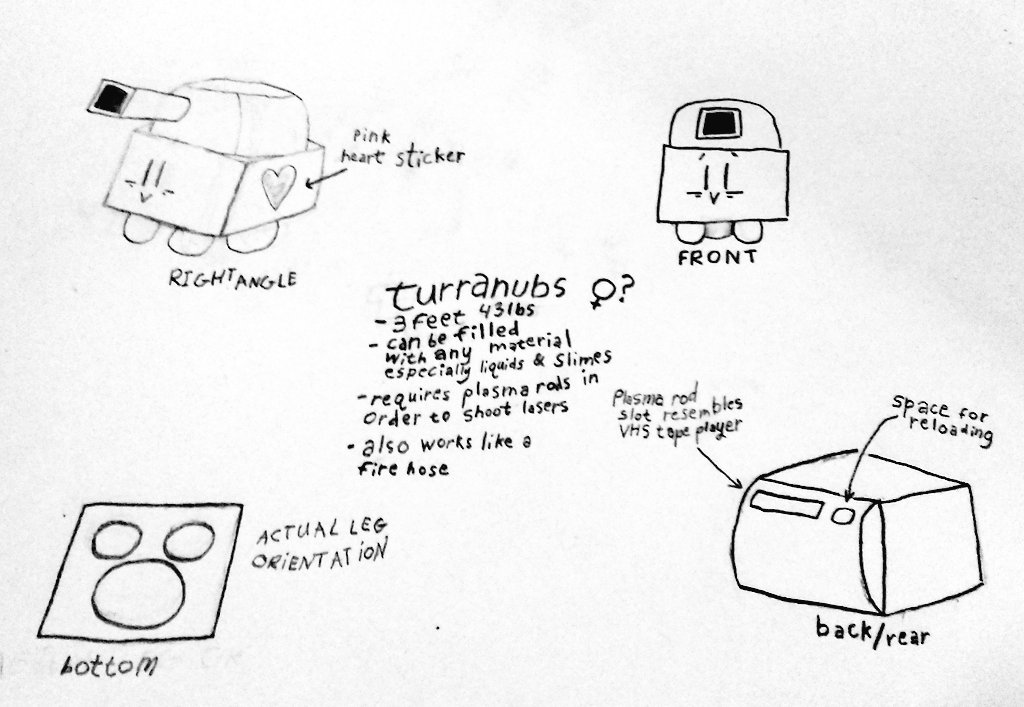 pink
heart sticker
RIGHT ANGLE
FRONT
turranubs ♀?
- 3 feet 43lbs
- can be filled
with any material
especially liquids & slimes
- requires plasma rods in
order to shoot lasers
- also works like a
fire hose
Plasma rod
slot resembles
VHS tape player
space for
reloading
ACTUAL LEG
ORiENTATiON
bottom
back/rear